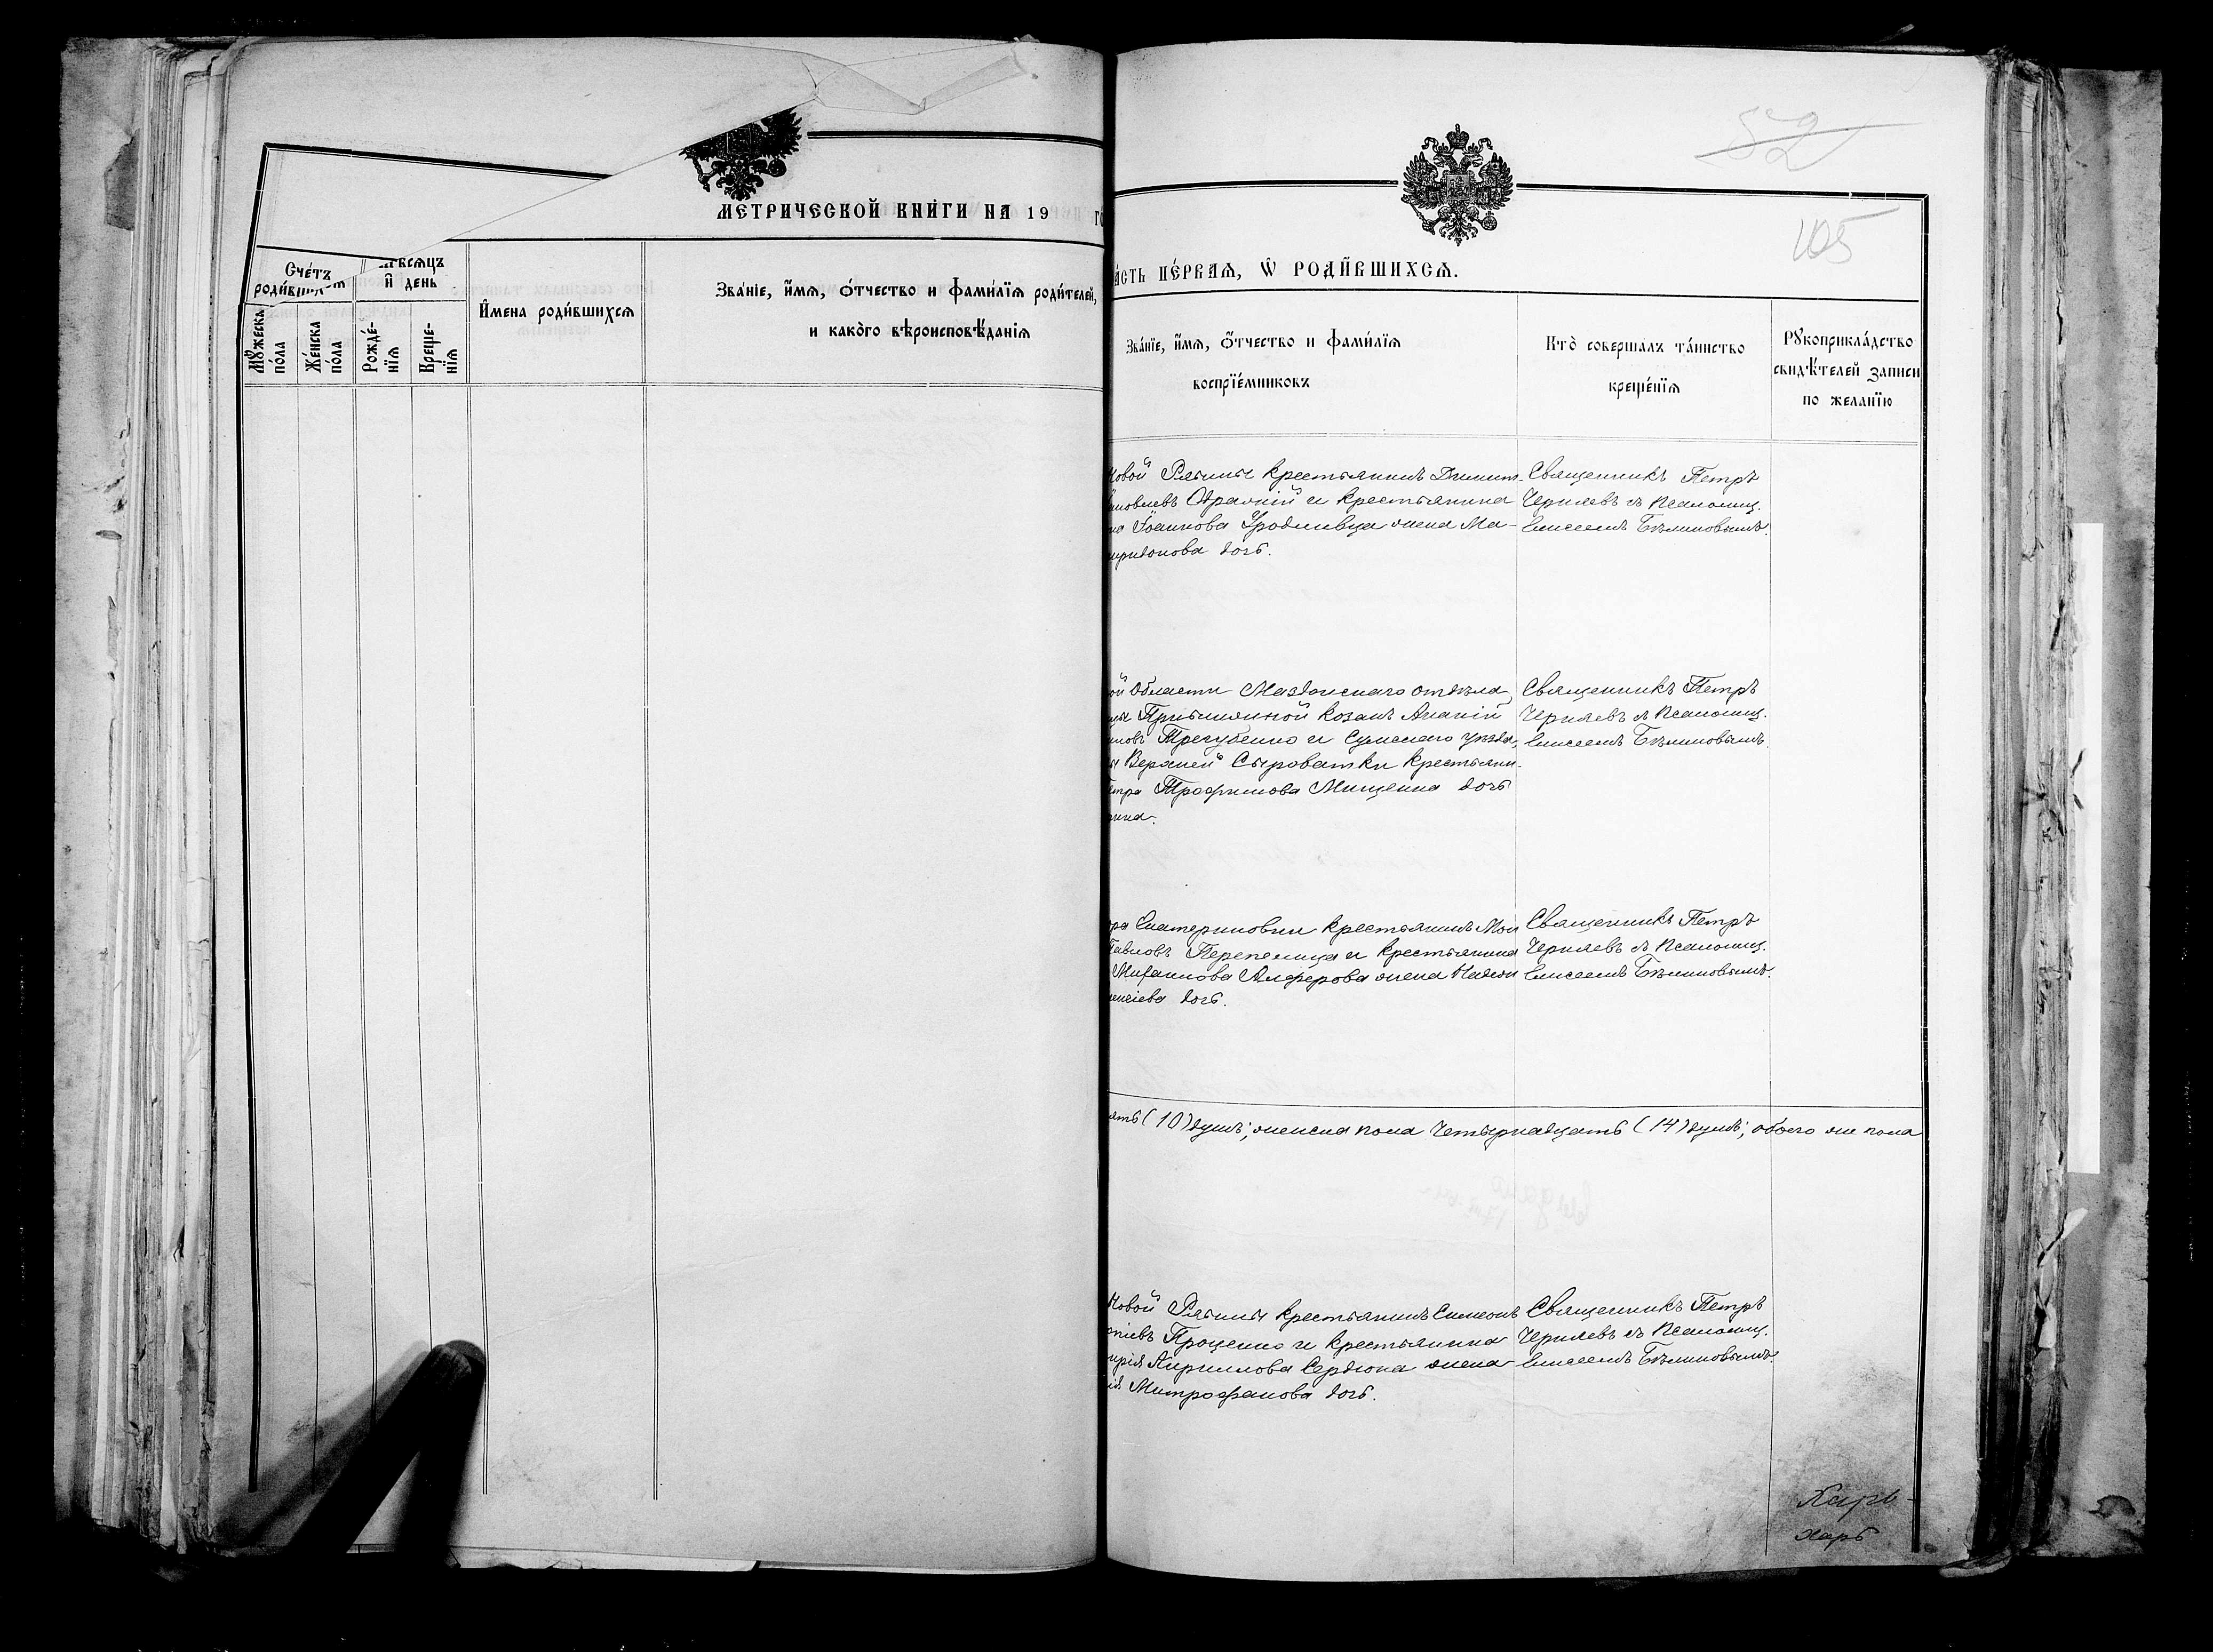 МЕТРИЧЕСКОЙ КНИГИ НА 19 го
Счетъ
родившихся
Мужеска
пола
Женска
пола
Мѣсяцъ
и день
Рожде-
нія
Креще-
нія
Имена родившихся
Званіе, имя, отчество и фамилія родителей,
и какого вѣроисповѣданія
52
105
асть первая, ѿ родившихся.
Званіе, имя, отчество и фамилія
воспріемниковъ
Кто совершалъ таинство
крещенія
Рукоприкладство
свидѣтелей записи
по желанію
Новой Рябины крестьянинъ Димит-
ковлевъ и крестьянина
Іоаннова жена Ма-
иридонова дочь.
Священникъ Петръ
Черняевъ съ Псаломщ.
Елисеемъ Бѣликовымъ.
ой Области Моздокскаго отдѣла,
козакъ Ананій
Трегубенко и Сумскаго уѣзда,
Верхней Сыроватки крестьяни-
етра Трофимова Мищенка дочь
Священникъ Петръ
Черняевъ съ Псаломщ.
Елисеемъ Бѣликовымъ.
ора Екатериновки крестьянинъ Мои
Павловъ Перепелица и крестьянина
Михаилова Алферова жена
дочь.
Священникъ Петръ
Черняевъ съ Псаломщ.
Елисеемъ Бѣликовымъ.
ять (10) душъ; женска пола четырнадцать (14) душъ; обоего же пола
Новой Рябины крестьянинъ Симеонъ
Проценко и крестьянина
Кириллова Сердюка жена
ія Митрофанова дочь.
Священникъ Петръ
Черняевъ съ Псаломщ.
Елисеемъ Бѣликовымъ.
Харь-
харь